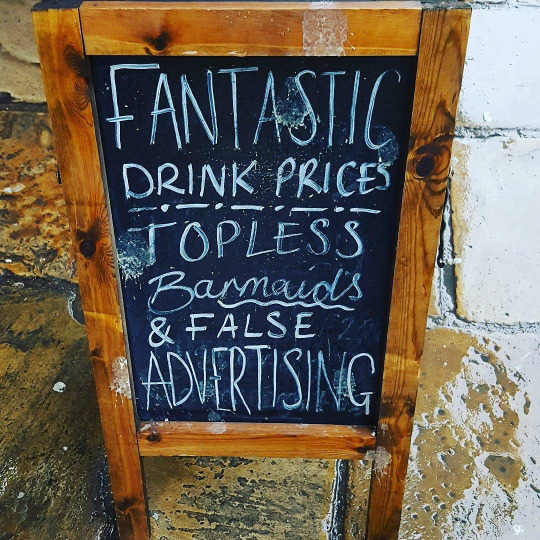 FANTASTIC
DRINK PRICES
TOPLESS
Barmaids
& FALSE
ADVERTISING